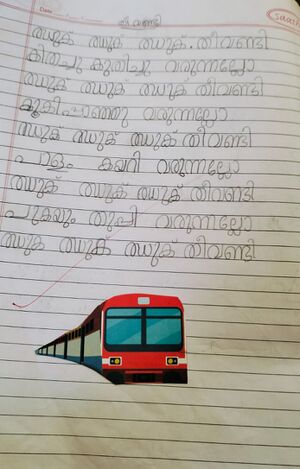 Date
തീവണ്ടി
ഝുക് ഝുക് ഝുക് തീവണ്ടി
കിതച്ചു കുതിച്ചു വരുന്നല്ലോ
ഝുക് ഝുക് ഝുക് തീവണ്ടി
കൂകിപ്പാഞ്ഞു വരുന്നല്ലോ
ഝുക് ഝുക് ഝുക് തീവണ്ടി
പാളം കയറി വരുന്നല്ലോ
ഝുക് ഝുക് ഝുക് തീവണ്ടി
പുകയും തുപ്പി വരുന്നല്ലോ
ഝുക ഝുക് ഝുക് തീവണ്ടി